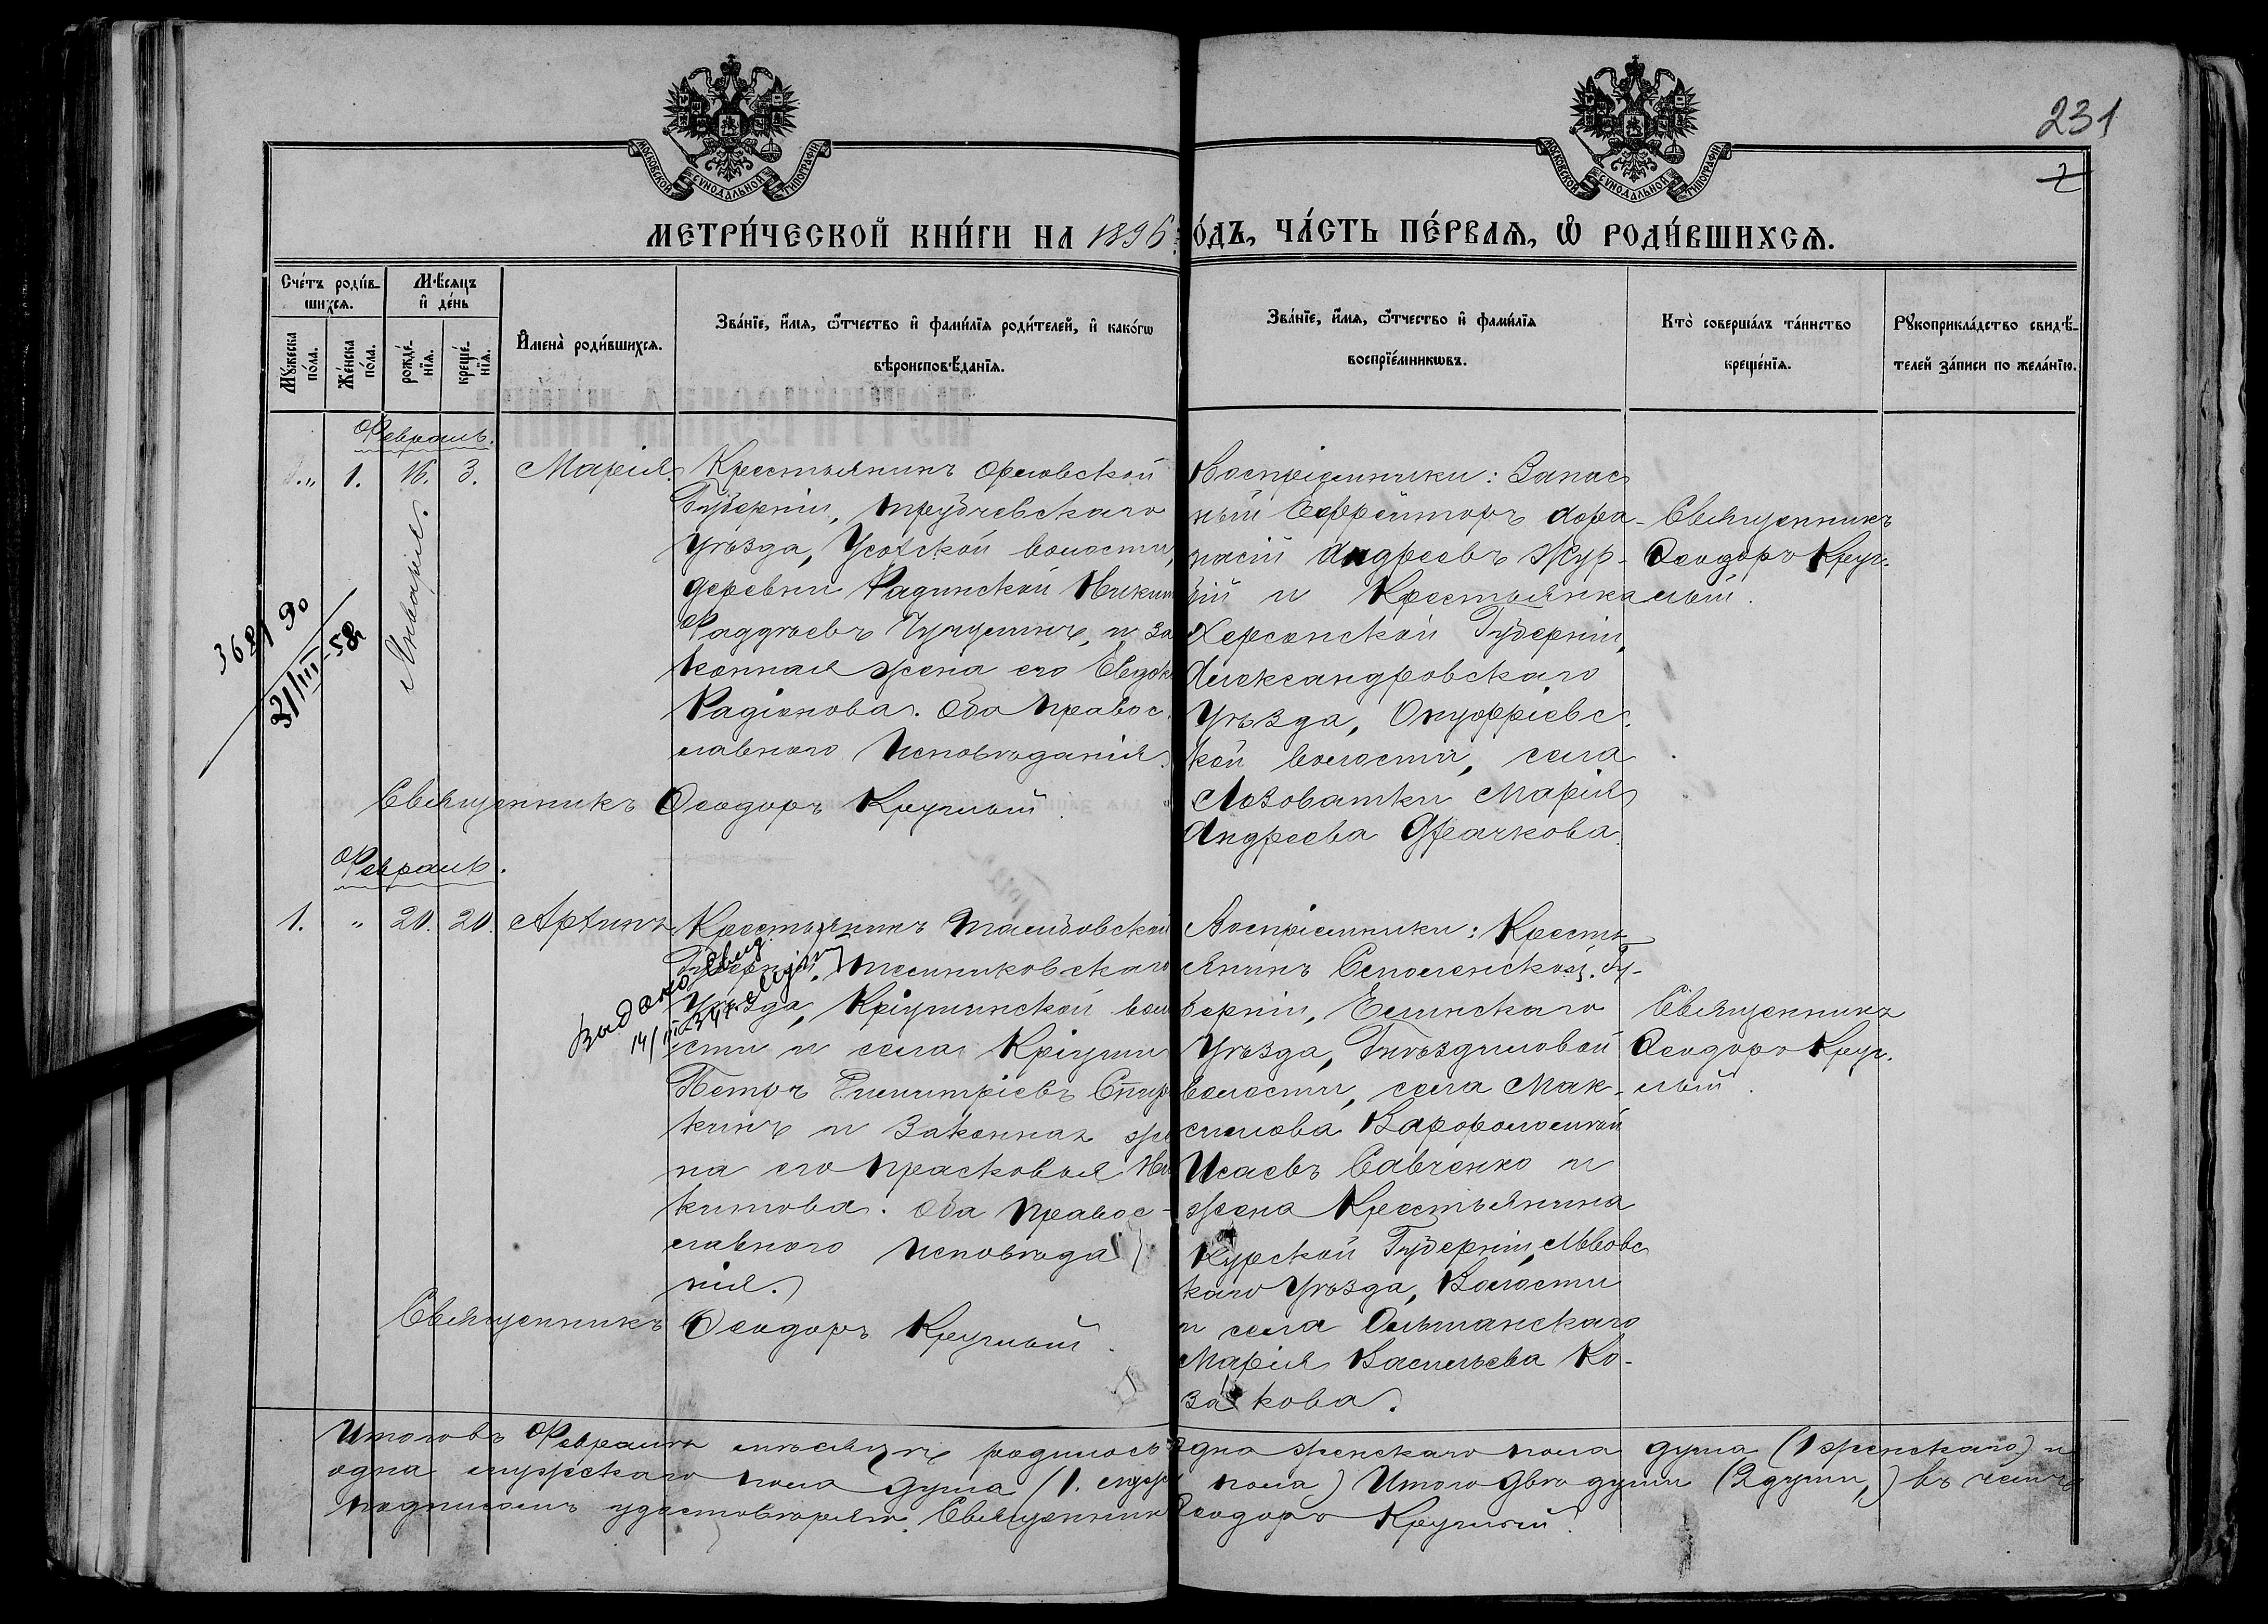 231
МОСКОВСКОЙ СѴНОДАЛЬНОЙ ТИПОГРАФІИ
МОСКОВСКОЙ СѴНОДАЛЬНОЙ ТИПОГРАФІИ
МЕТРИ́ЧЕСКОЙ КНИ́ГИ НА 1896
О́ДЪ, ЧА́СТЬ ПЕ́РВАѦ, Ѡ҆ РОДИ́ВШИХСѦ.
Сче́тъ роди́в-
шихсѧ.
Мꙋ́жеска
по́ла.
Же́нска
по́ла.
Мѣ́сѧцъ
и҆ де́нь
рожде́-
нїѧ.
креще́-
нїѧ.
И҆мена̀ роди́вшихсѧ.
Зва́нїе, и҆́мѧ, ѻ҆́тчество и҆ фами́лїѧ роди́телей, и҆ како́гѡ
вѣроисповѣ́данїѧ.
Зва́нїе, и҆́мѧ, ѻ҆́тчество и҆ фами́лїѧ
воспрїе́мникѡвъ.
Кто̀ соверша́лъ та́инство
креще́нїѧ.
Рꙋкоприкла́дство свидѣ́-
телей за́писи по жела́нїю.
Февраль.
„ 1. 16. 3. Марія.
Января.
21/III-58
Крестьянинъ Орловской
Губерніи, Трубчевскаго
Уѣзда, Усохской волости,
деревни Радинской Никит
Фаддѣевъ и за
конная жена его Евдок
Радіонова. Оба Правос-
лавнаго Исповѣданія.
Священникъ Ѳеодоръ Круглый.
Воспріемники: Запас
ный Ефрейторъ Афа-
насій Андреевъ Жур-
ій и Крестьянка
Херсонской Губерніи,
Александровскаго
Уѣзда, Онуфріевс-
кой волости, села
Лозоватки Марія
Андреева Драчкова.
Священникъ
Ѳеодоръ Круг-
лый.
Февраль.
1. „ 20. 20. Архипъ
Крестьянинъ Тамбовской
Губерніи, Темниковскаго
Уѣзда, Кріушинской вол
сти и села Кріуши
Петръ Димитріевъ Спир
кинъ и законная же
на его Прасковья Ни
китова. Оба Правос-
лавнаго исповѣда
нія.
Священникъ Ѳеодоръ Круглый.
Выдано свид.
14/III
Воспріемники: Кресть
янинъ Смоленской Гу-
берніи, Елнинскаго
Уѣзда, Гнѣздиловой
волости, села Мак-
симова Варфоломей
Исаевъ Савченко и
жена Крестьянина
Курской Губерніи, Львовс
каго Уѣзда, Волости
и села Ольшанскаго
Марія Васильева Ко-
за кова.
Священникъ
Ѳеодоръ Круг-
лый.
Итого въ Февралѣ мѣсяцѣ родилось одна женскаго пола душа (1 женскаго) и
одна мужескаго пола душа (1. мужес пола) Итого двѣ души (2 души,) въ чемъ
подписомъ удостовѣряю. Священник Ѳеодоръ Круглый.